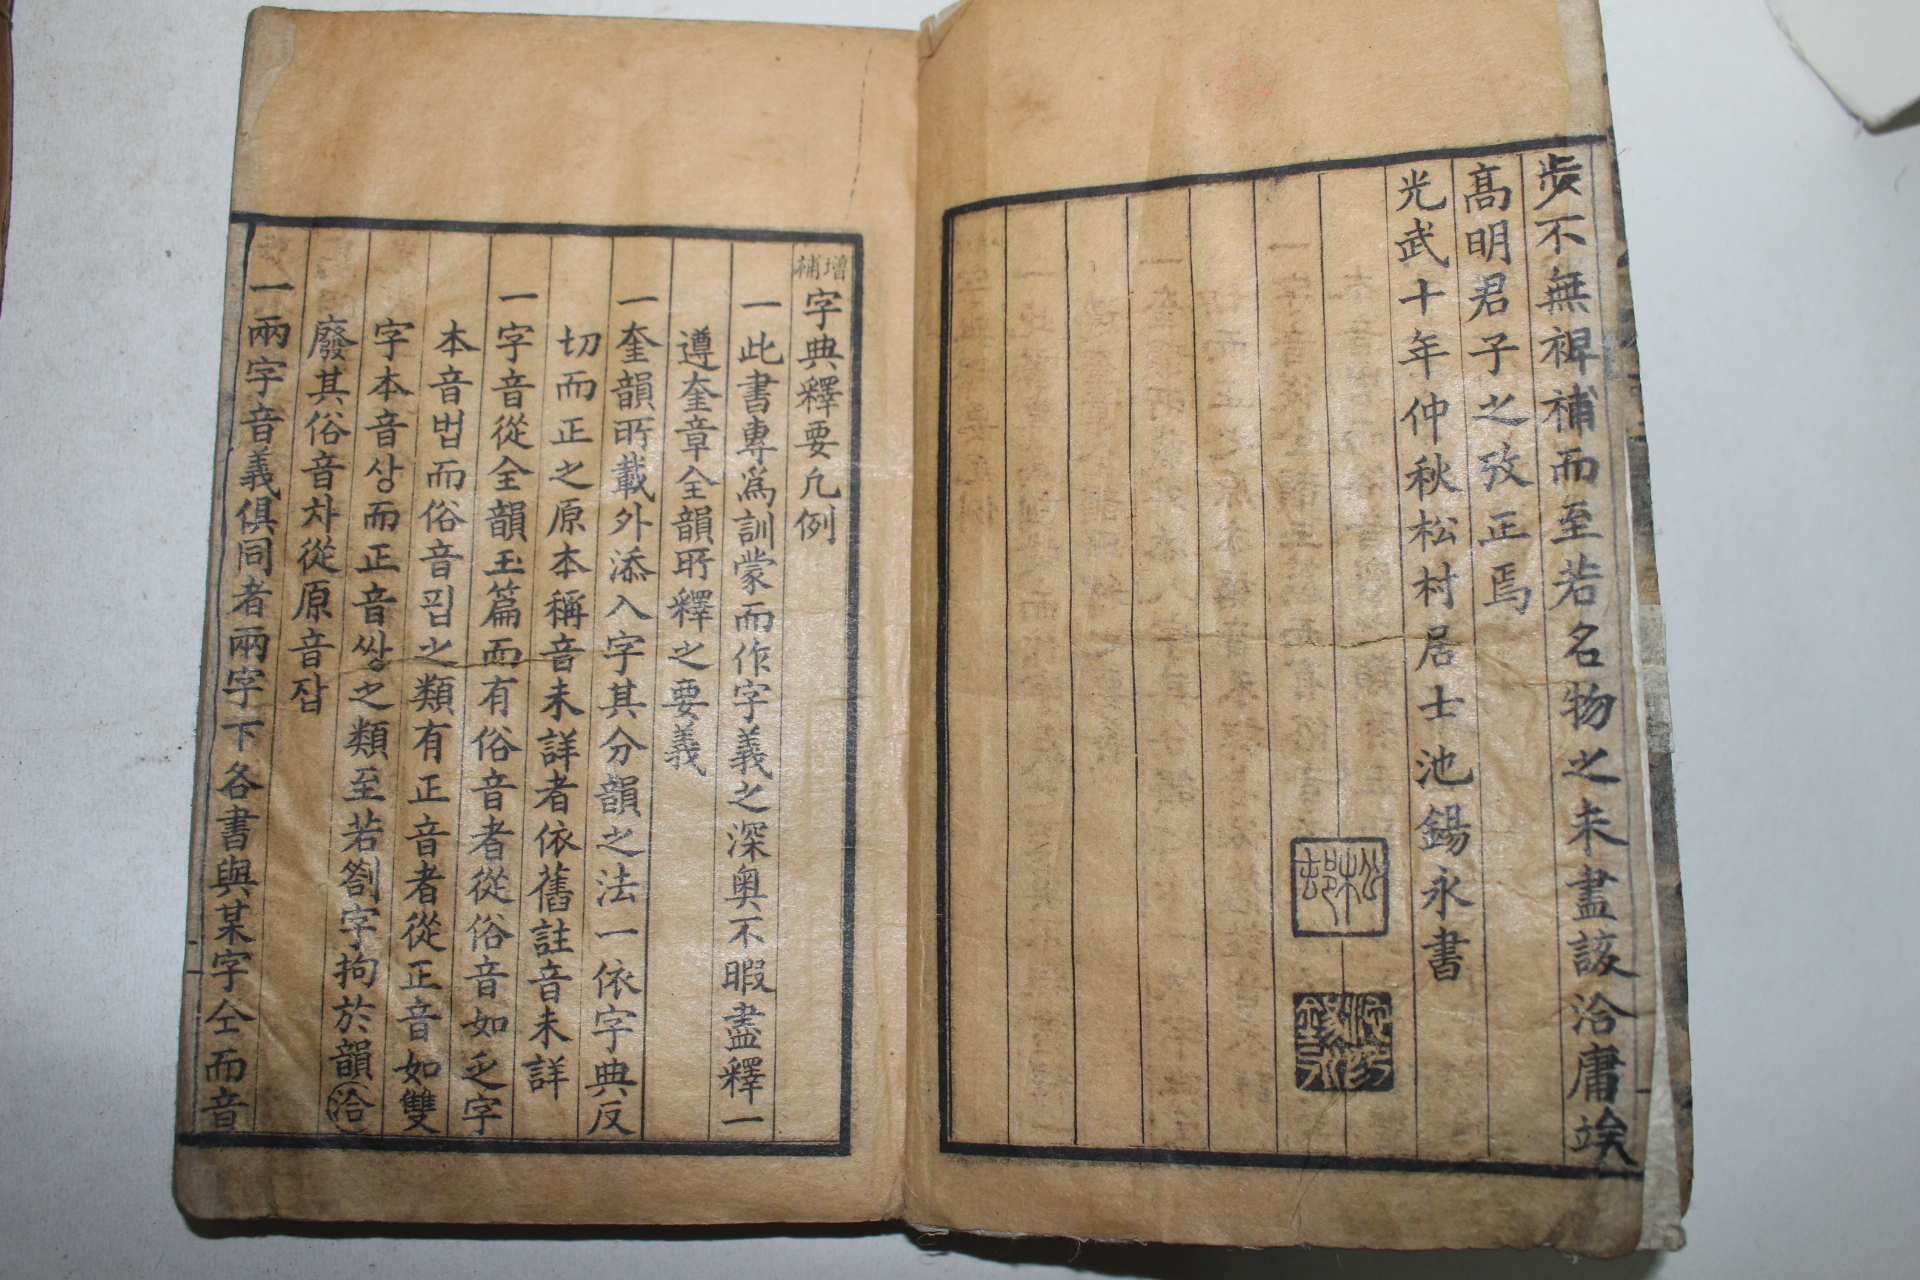 步不無裨補而至若名物之未盡該洽庸竢
高明君子之攷正焉
光武十年仲秋松村居士池錫永書
松邨
池錫永
增補字典釋要凡例
一此書專爲訓蒙而作字義之深奧不暇盡釋一
遵奎章全韻所釋之要義
一奎韻所載外添入字其分韻之法一依字典反
切而正之原本稱音未詳者依舊註音未詳
一字音從全韻玉篇而有俗音者從俗音如乏字
本音법而俗音핍之類有正音者從正音如雙
字本音상而正音쌍之類至若劄字拘於韻洽
廢其俗音차從原音잡
一兩字音義俱同者兩字下各書與某字仝而音